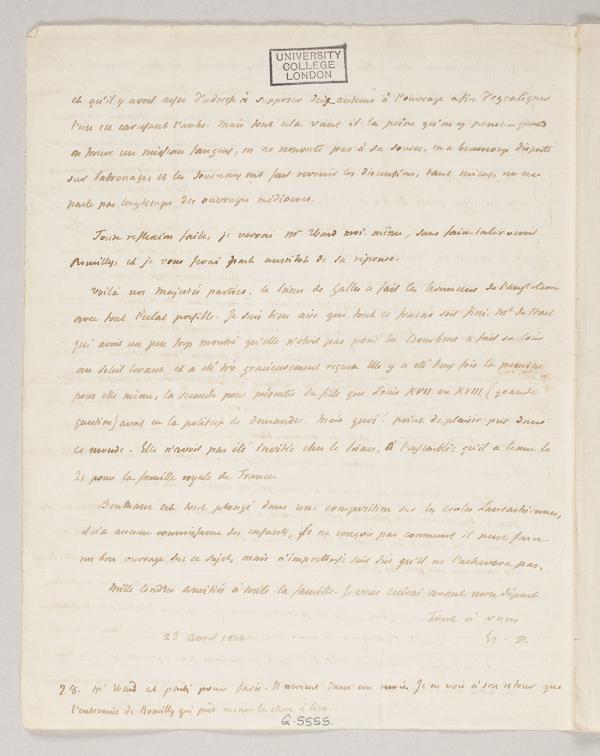 UNIVERSITY
COLLEGE
LONDON
et qu'il y avoit assez d'adresse à supposer deux auteurs à l'ouvrage afin d'egratigner
l'un en caressant l'autre. Mais tout cela vaut il la peine qu'on y pense - quand
on trouve un ruisseau fangeux, on ne remonte pas à sa source. on a beaucoup disputé
sur Patronage, et les Journaux ont fait revenir les discussions, tant mieux, on ne
parle pas longtemps des ouvrages médiocres.
Toute reflexion faite, je verrai Mr Ward moi-même, sans faire intervenir
Romilly, et je vous ferai part aussitôt de sa réponse.
Voilà nos Majestés parties. le Prince de Galles a fait les honneurs de l'angleterre
avec tout l'éclat possible. Je suis bien aise que tout ce fracas soit fini. Me de Stael
qui avoit un peu trop montré qu'elle n'etoit pas pour les Bourbons a fait sa cour
au soleil levant et a été très gracieusement reçue. Elle y a été deux fois la premiere
pour elle même, la seconde pour présenter sa fille que Louis XVII ou XVIII (grande
question) avoit eu la politesse de demander. Mais quoi! point de plaisir pur dans
ce monde. Elle n'avoit pas été invitée chez le Prince, à l'assemblée qu'il a tenue le
21 pour la famille royale de France.
Bentham est tout plongé dans une composition sur les ecoles Lancastriennes,
il n'a aucune connoissance des enfants, je ne conçois pas comment il peut faire
un bon ouvrage sur ce sujet, mais n'importe, je suis sûr qu'il ne l'achevera pas.
Mille tendres amitiés à toute la famille. Je vous écrirai avant mon départ
Tout à vous
Et. D.
23 avril 1814
28. Mr Ward est parti pour Paris. Il revient dans un mois. Je ne vois à son retour que
l'entremise de Romilly qui pût mener la chose à bien.
Q.5555.